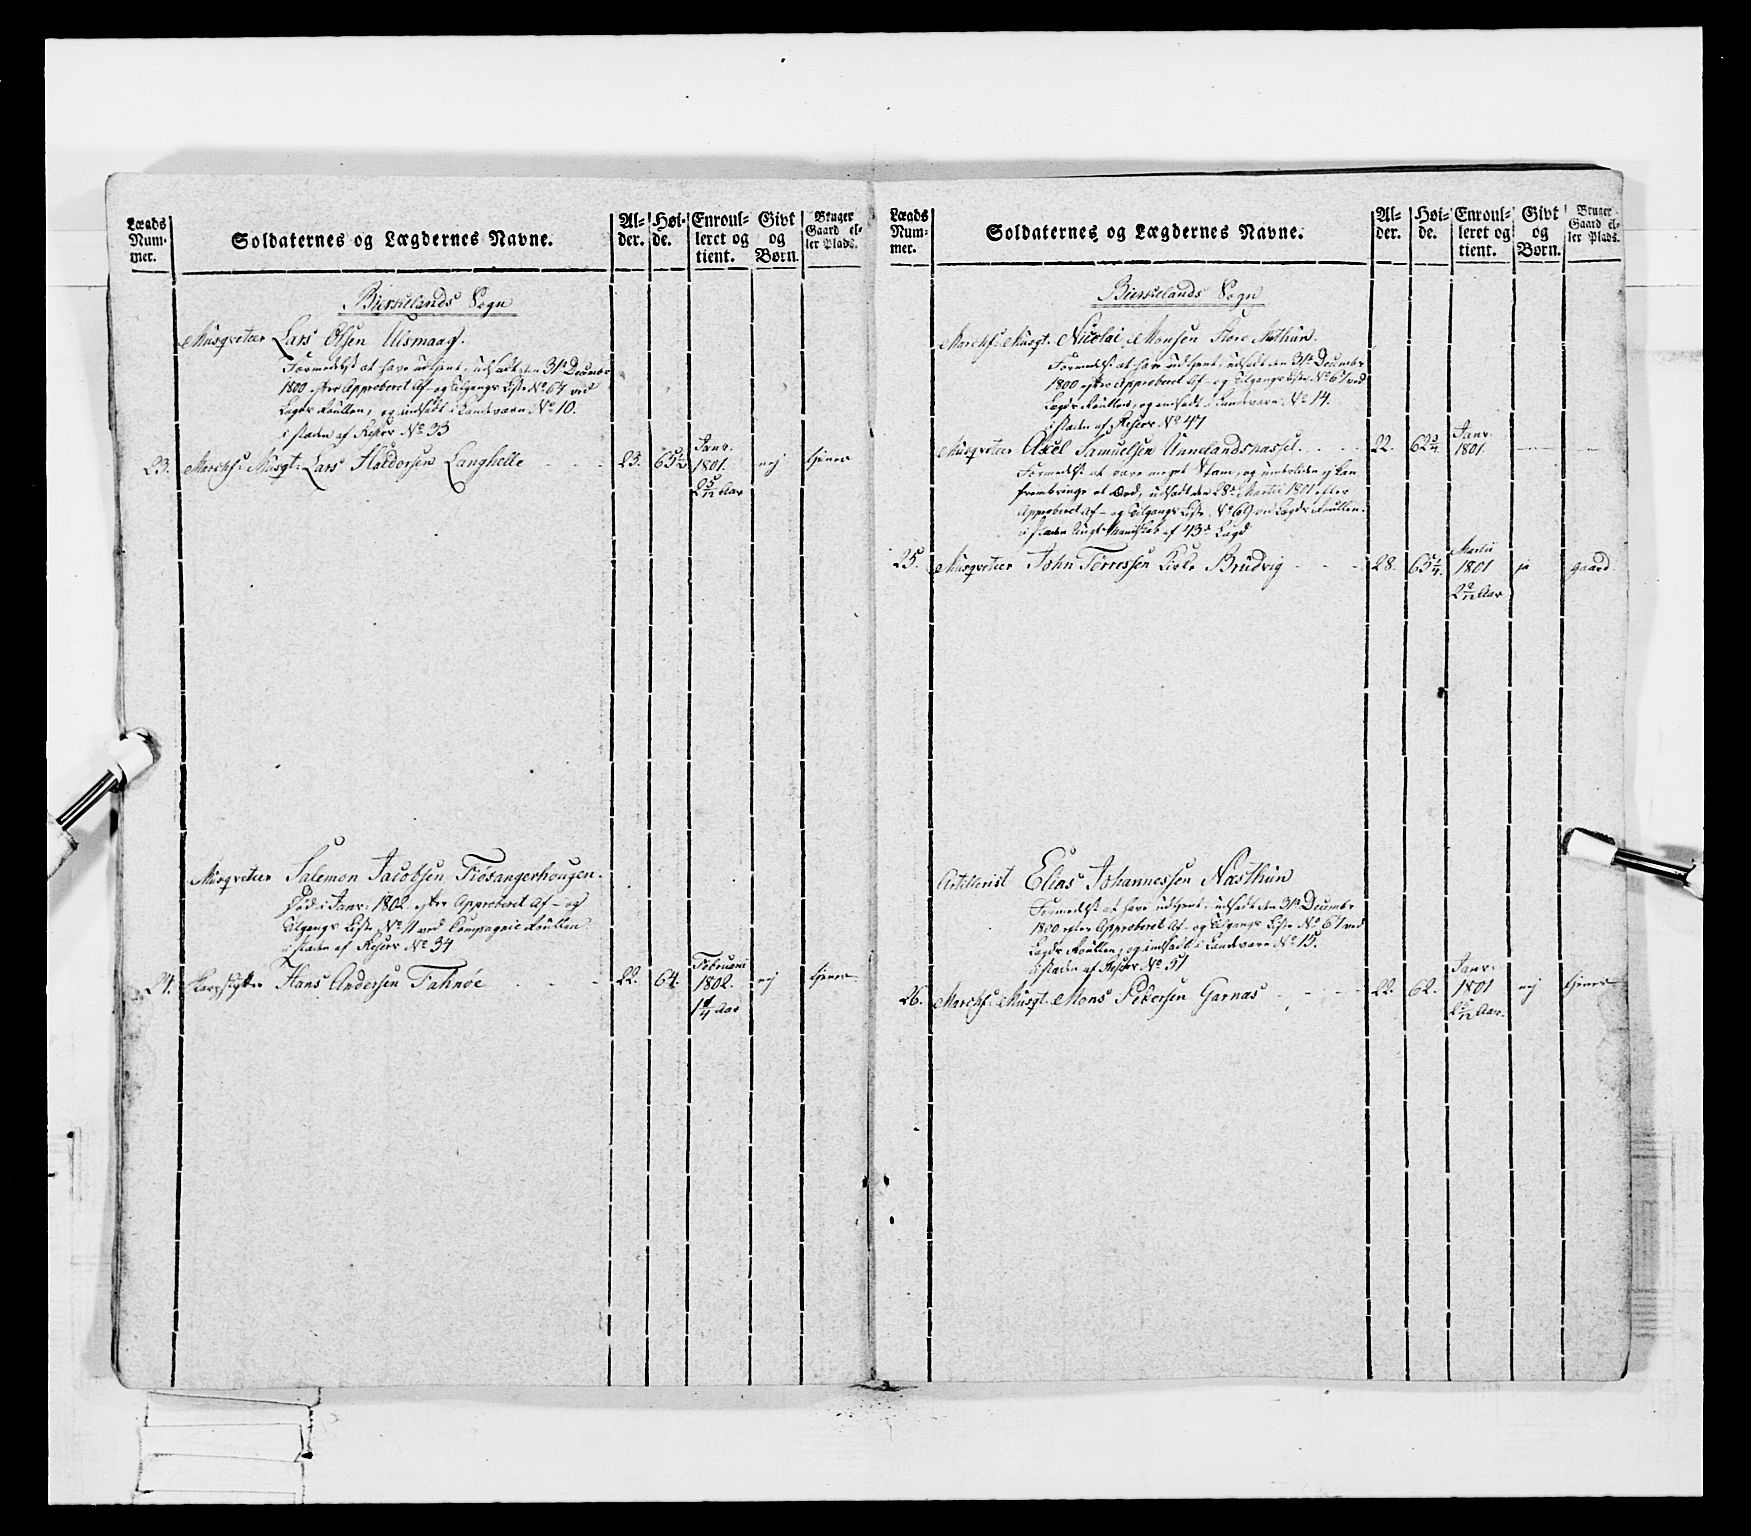 Lægds Num- mer.
Soldaternes og Lægdernes Navne.
Al- der.
Høi- de.
Enroul- leret og tient.
Givt og Børn.
Bruger Gaard el- ler Plads.
Birkelands Sogn
Musqveteer Lars Olsen Ulsmaag.
Formedelst at have udtient, udsadt den 31te Decembr
1800 efter Approberet Af- og Tilgangs Liste No 67 ved
Lægds Roullen, og indsadt i Landeværn No 10.
i staden af Reserv No 33
23. Marchs: Musqt: Lars Haldorsen Langhelle 23. Janr: 1801. nej tiener
2 5/12 Aar
Musqveteer Salemon Jacobsen Tiøsangerhougen.
Død i Janr: 1802. efter Approberet Af- og
Tilgangs Liste No 11 ved Compagnie Roullen
i staden af Reserv No 34
24. Hans Andersen Fahnøe 22. 64. Februarii 1802. nej tiener
1 1/4 Aar
Lægds Num- mer.
Soldaternes og Lægdernes Navne.
Al- der.
Høi- de.
Enroul- leret og tient.
Givt og Børn.
Bruger Gaard el- ler Plads.
Birkelands Sogn
Marchs: Musqt: Nicolai Monsen Store Nøthun.
Formedelst at have udtient, udsadt den 31te Decembr
1800 efter Approberet Af- og Tilgangs Liste No 67 ved
Lægds Roullen, og indsadt i Landeværn No 14.
i staden af Reserv No 47
Musqveteer Axel Samuelsen Unnelandspladsel 22. 62 3/4 Janr: 1801.
Formedelst at være meget Stam, og umueligen ej kan
frembringe et Ord, udsadt den 28de Martii 1801 efter
Approberet Af- og Tilgangs Liste No 69 ved Lægds Roullen.
i staden Ungt Mandskab af 43de Lægd
25. Musqveteer John Torressen Lisle Brudvig 28. 65 1/4. Martii 1801 ja Gaard
2 3/12 Aar
Artillerist Elias Johannessen Næsthun
Formedelst at have udtient, udsadt den 31te Decembr
1800 efter Approberet Af- og Tilgangs Liste No 67 ved
Lægds Roullen, og indsadt i Landeværn No 15.
i staden af Reserv No 51
26. Marchs: Musqt: Mons Pedersen Garnæs 22. 62. Janr: 1801 nej tiener
2 5/12 Aar.